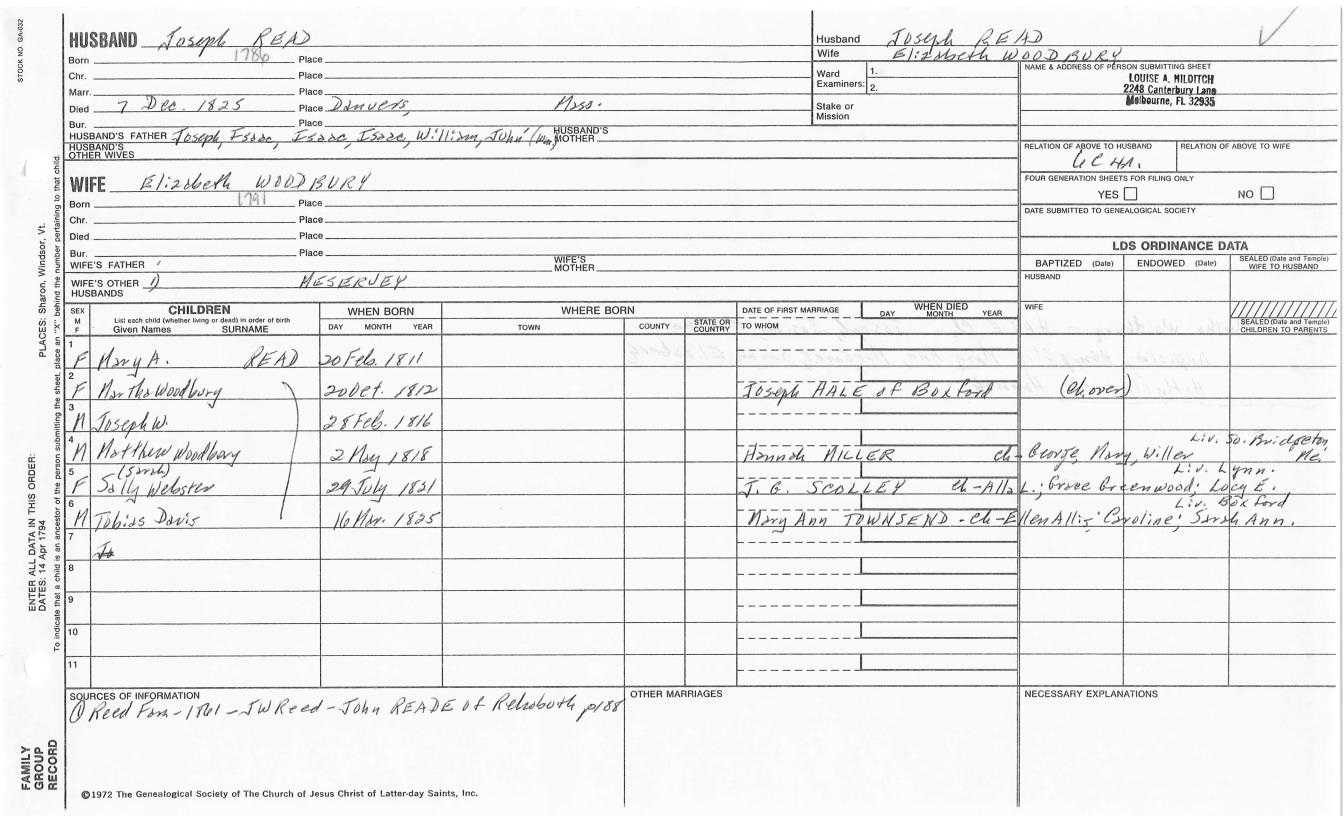 STOCK NO. GA-032
HUSBAND Joseph READ
Born 1786 Place
Chr. Place
Marr. Place
Died 7 Dec. 1825 Place Danvers, Mass.
Bur. Place
HUSBAND'S FATHER Joseph, Isaac, Isaac, Isaac, William, John' (Wm, HUSBAND'S MOTHER
HUSBAND'S OTHER WIVES
WIFE Elizabeth WOODBURY
Born 1791 Place
Chr. Place
Died Place
Bur. Place
WIFE'S FATHER WIFE'S MOTHER
WIFE'S OTHER HUSBANDS 1) MESERVEY
Husband Joseph READ
Wife Elizabeth WOODBURY
Ward Examiners: 1. 2.
Stake or Mission
NAME & ADDRESS OF PERSON SUBMITTING SHEET
LOUISE A. MILDITCH
2248 Canterbury Lane
Melbourne, FL 32935
RELATION OF ABOVE TO HUSBAND RELATION OF ABOVE TO WIFE
FOUR GENERATION SHEETS FOR FILING ONLY
YES NO
DATE SUBMITTED TO GENEALOGICAL SOCIETY
LDS ORDINANCE DATA
BAPTIZED (Date) ENDOWED (Date) SEALED (Date and Temple) WIFE TO HUSBAND
HUSBAND
WIFE
SEALED (Date and Temple) CHILDREN TO PARENTS
SEX M F CHILDREN WHEN BORN WHERE BORN DATE OF FIRST MARRIAGE WHEN DIED
List each child (whether living or dead) in order of birth
Given Names SURNAME DAY MONTH YEAR TOWN COUNTY STATE OR COUNTRY TO WHOM DAY MONTH YEAR
1 F Mary A. READ 20 Feb. 1811
2 F Martha Woodbury 20 Oct. 1812 Joseph HALE of Boxford (Ch. over)
3 M Joseph W. 28 Feb. 1816
4 M Matthew Woodbury 2 May 1818 Hannah MILLER ch- George, Mary, Willer Liv. So. Bridgeton, Me.
5 F (Sarah) Sally Webster 29 July 1821 J. G. SCOLLEY ch-Alla L.; Grace Greenwood; Lucy E. Liv. Lynn.
6 M Tobias Davis 16 Mar. 1825 Mary Ann TOWNSEND - ch-Ellen Allis; Caroline; Sarah Ann. Liv. Boxford
7 Jo
8
9
10
11
SOURCES OF INFORMATION
① Reed Fam - 1861 - JW Reed - John READE of Rehoboth p188
OTHER MARRIAGES
NECESSARY EXPLANATIONS
©1972 The Genealogical Society of The Church of Jesus Christ of Latter-day Saints, Inc.
ENTER ALL DATA IN THIS ORDER:
DATES: 14 Apr 1794 PLACES: Sharon, Windsor, Vt.
To indicate that a child is an ancestor of the person submitting the sheet, place an "X" behind the number pertaining to that child.
FAMILY GROUP RECORD